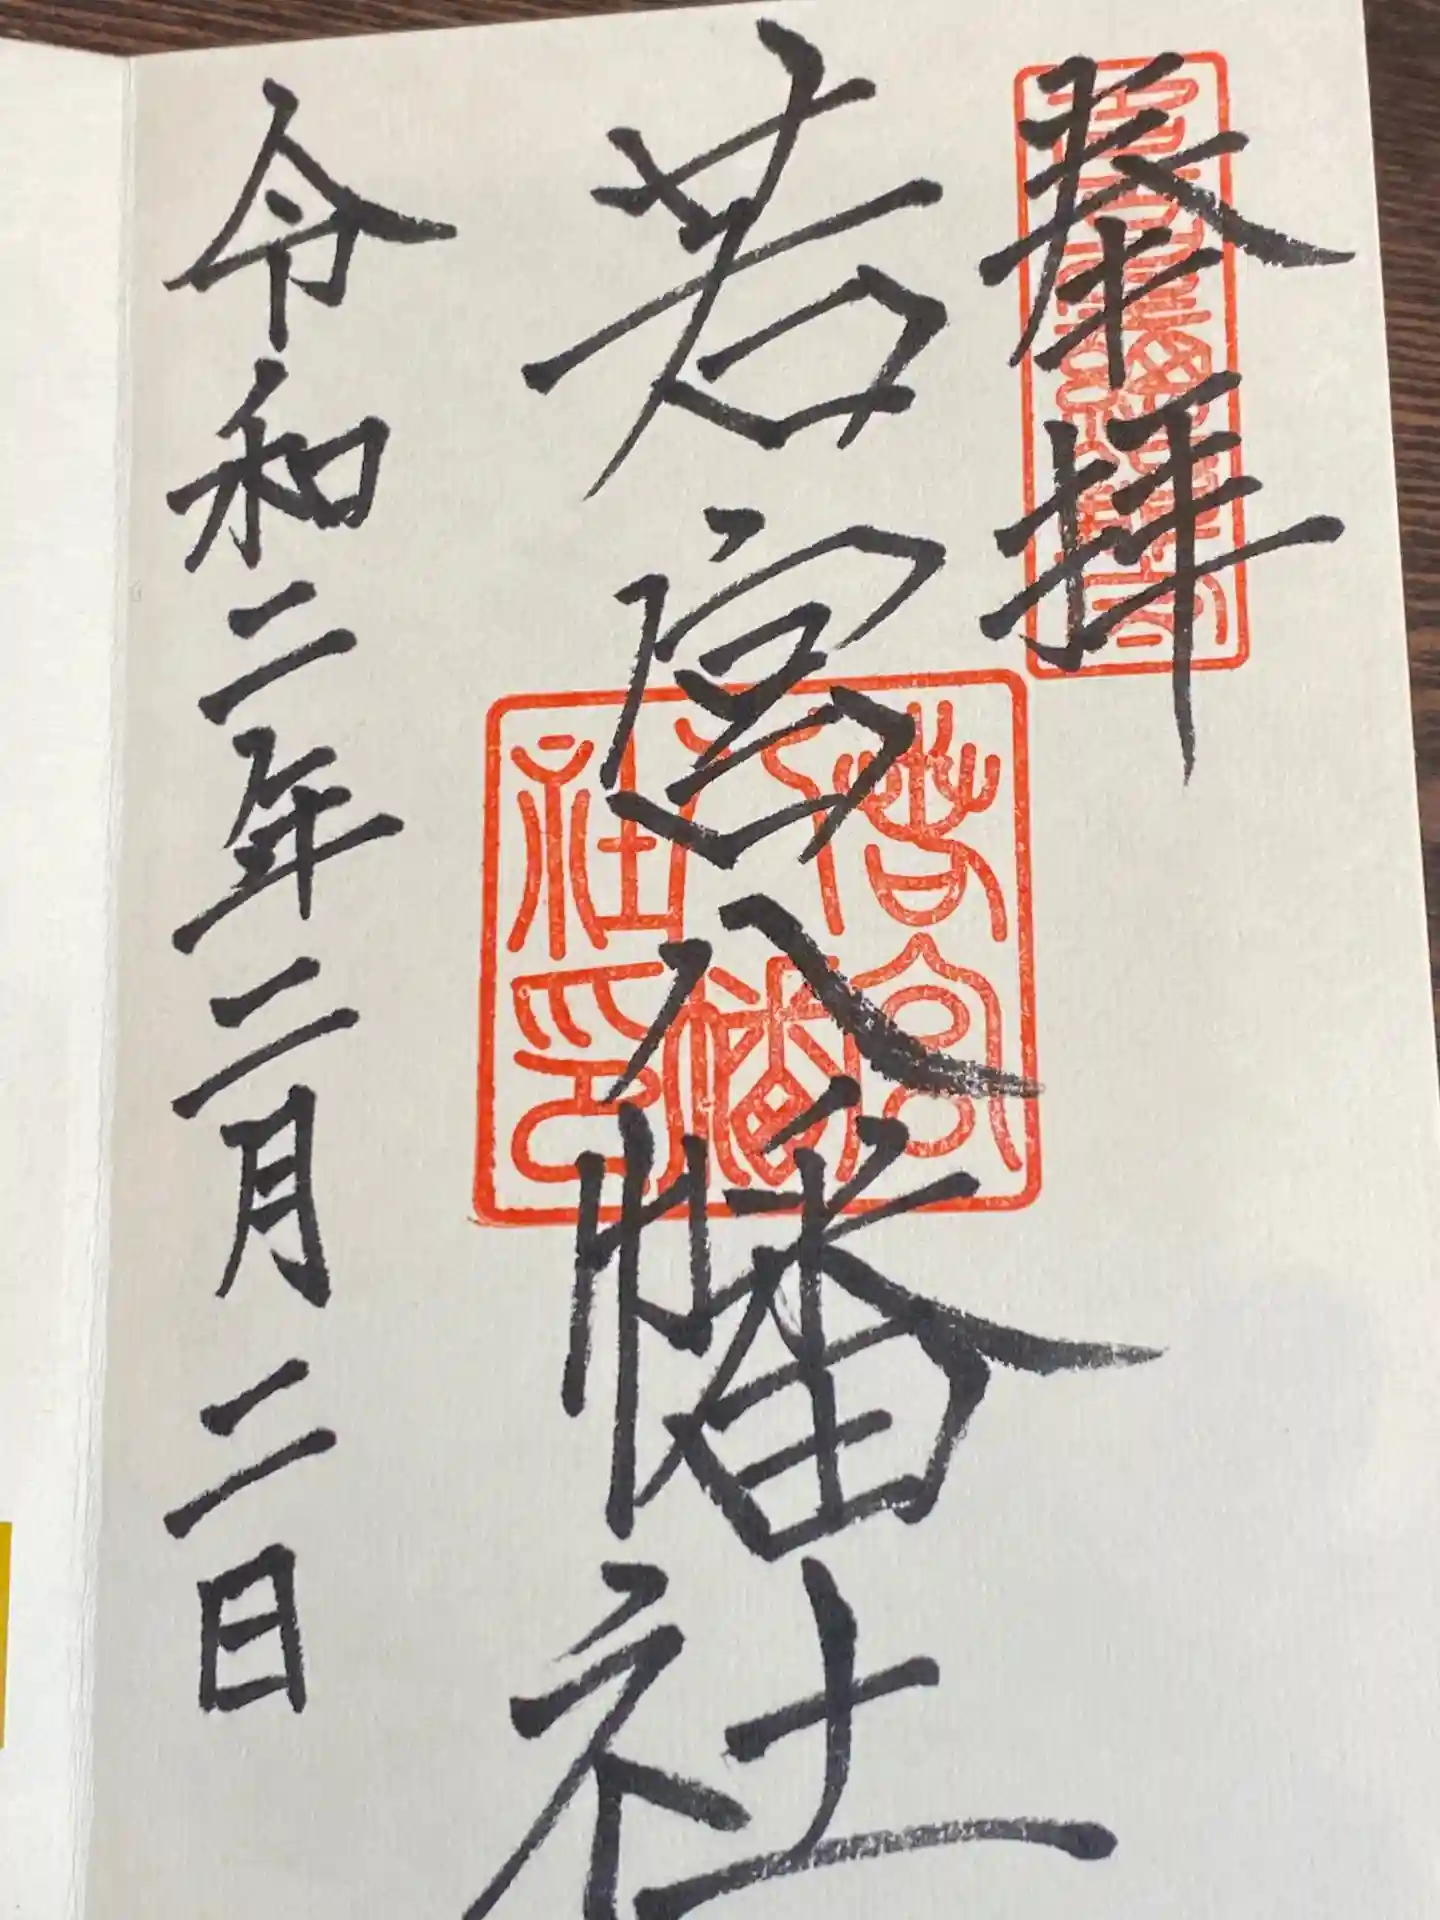 奉拝
若宮八幡社
若宮
八幡
社印
令和二年二月二日